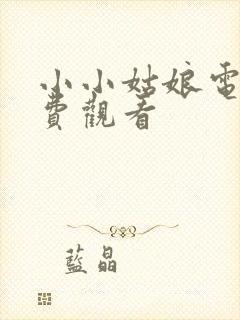 小小姑娘電
費觀看
藍晶